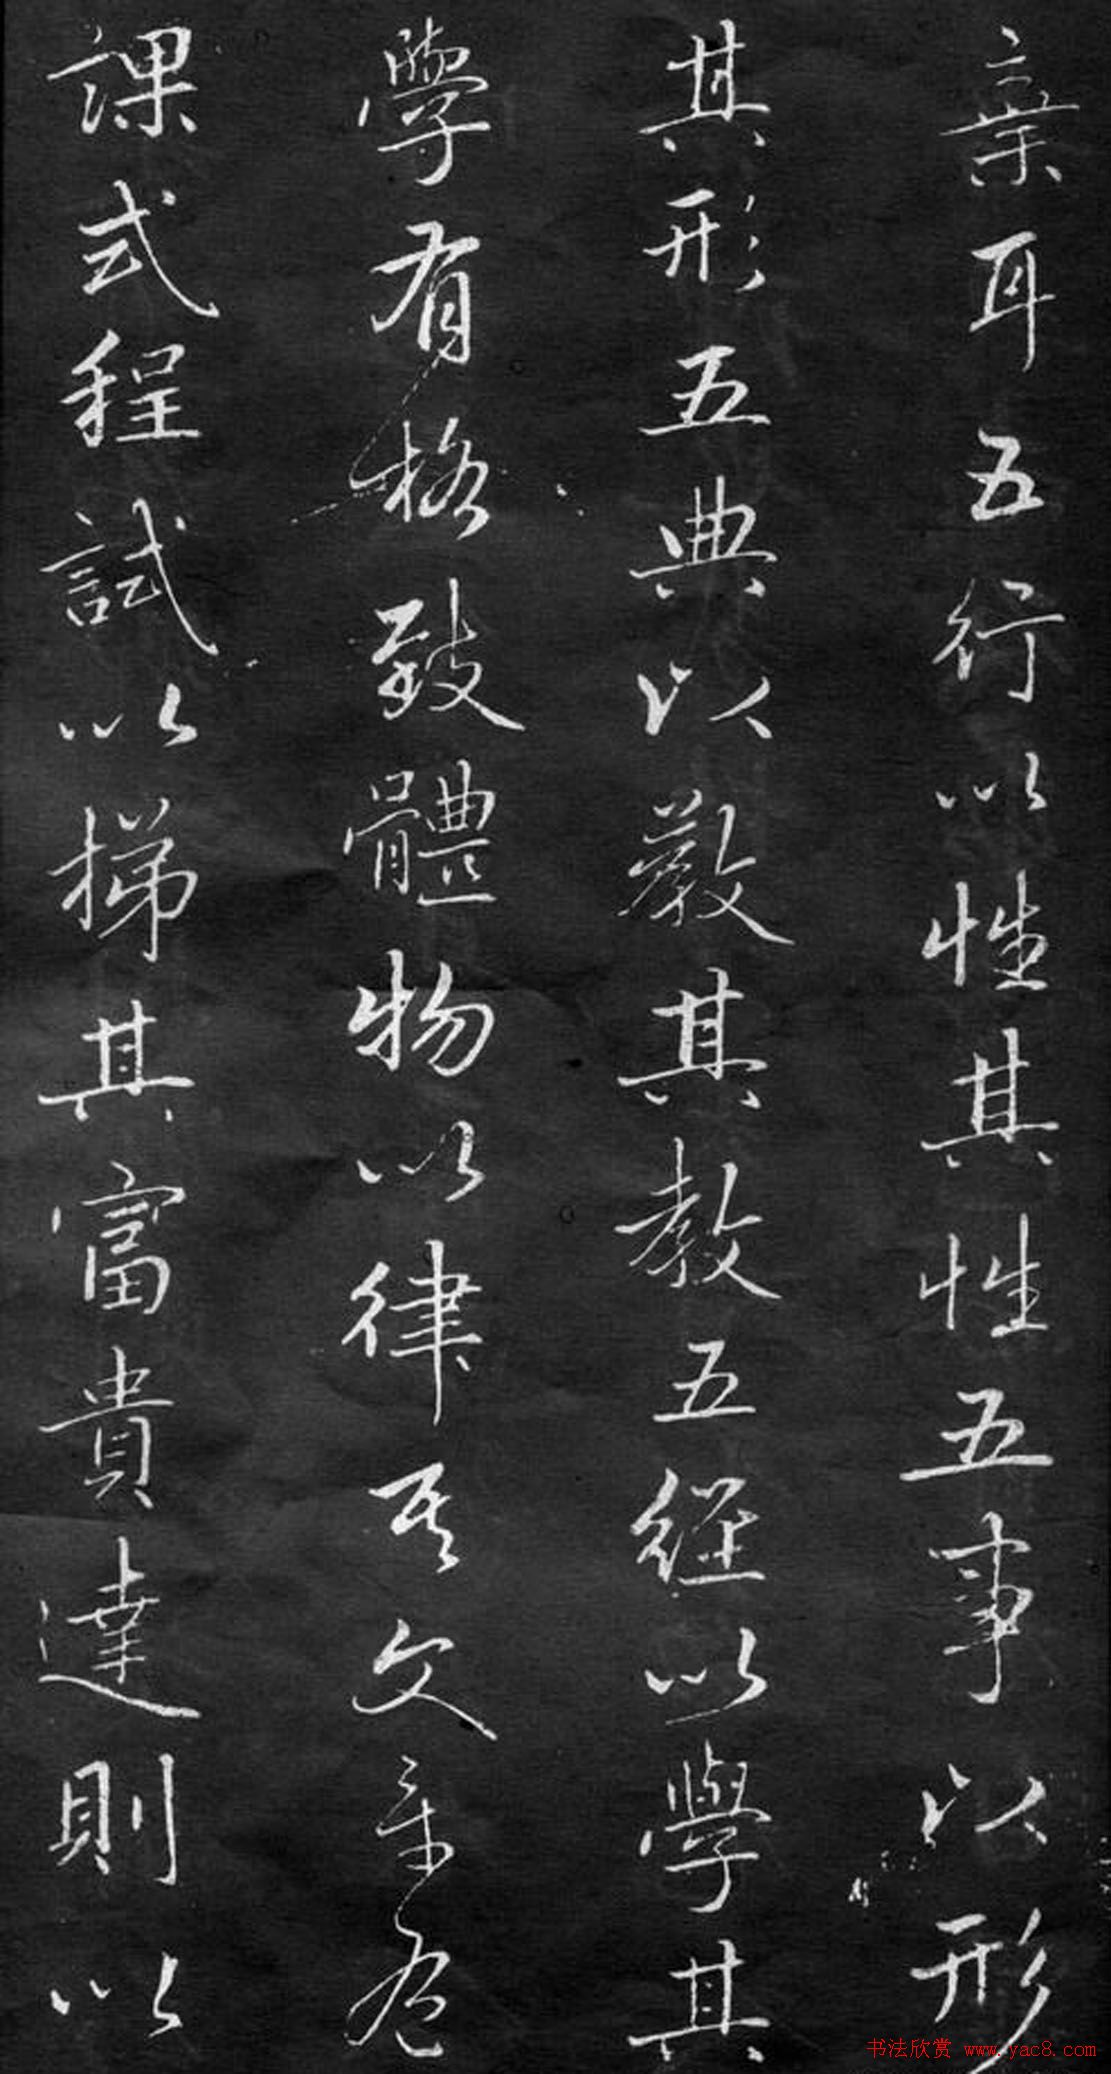 棄耳五行以性其性五事以形
其形五典以教其教五經以學其
學有格致體物以律其文章卷
課式程試以梯其富貴達則以
书法欣赏 www.yac8.com